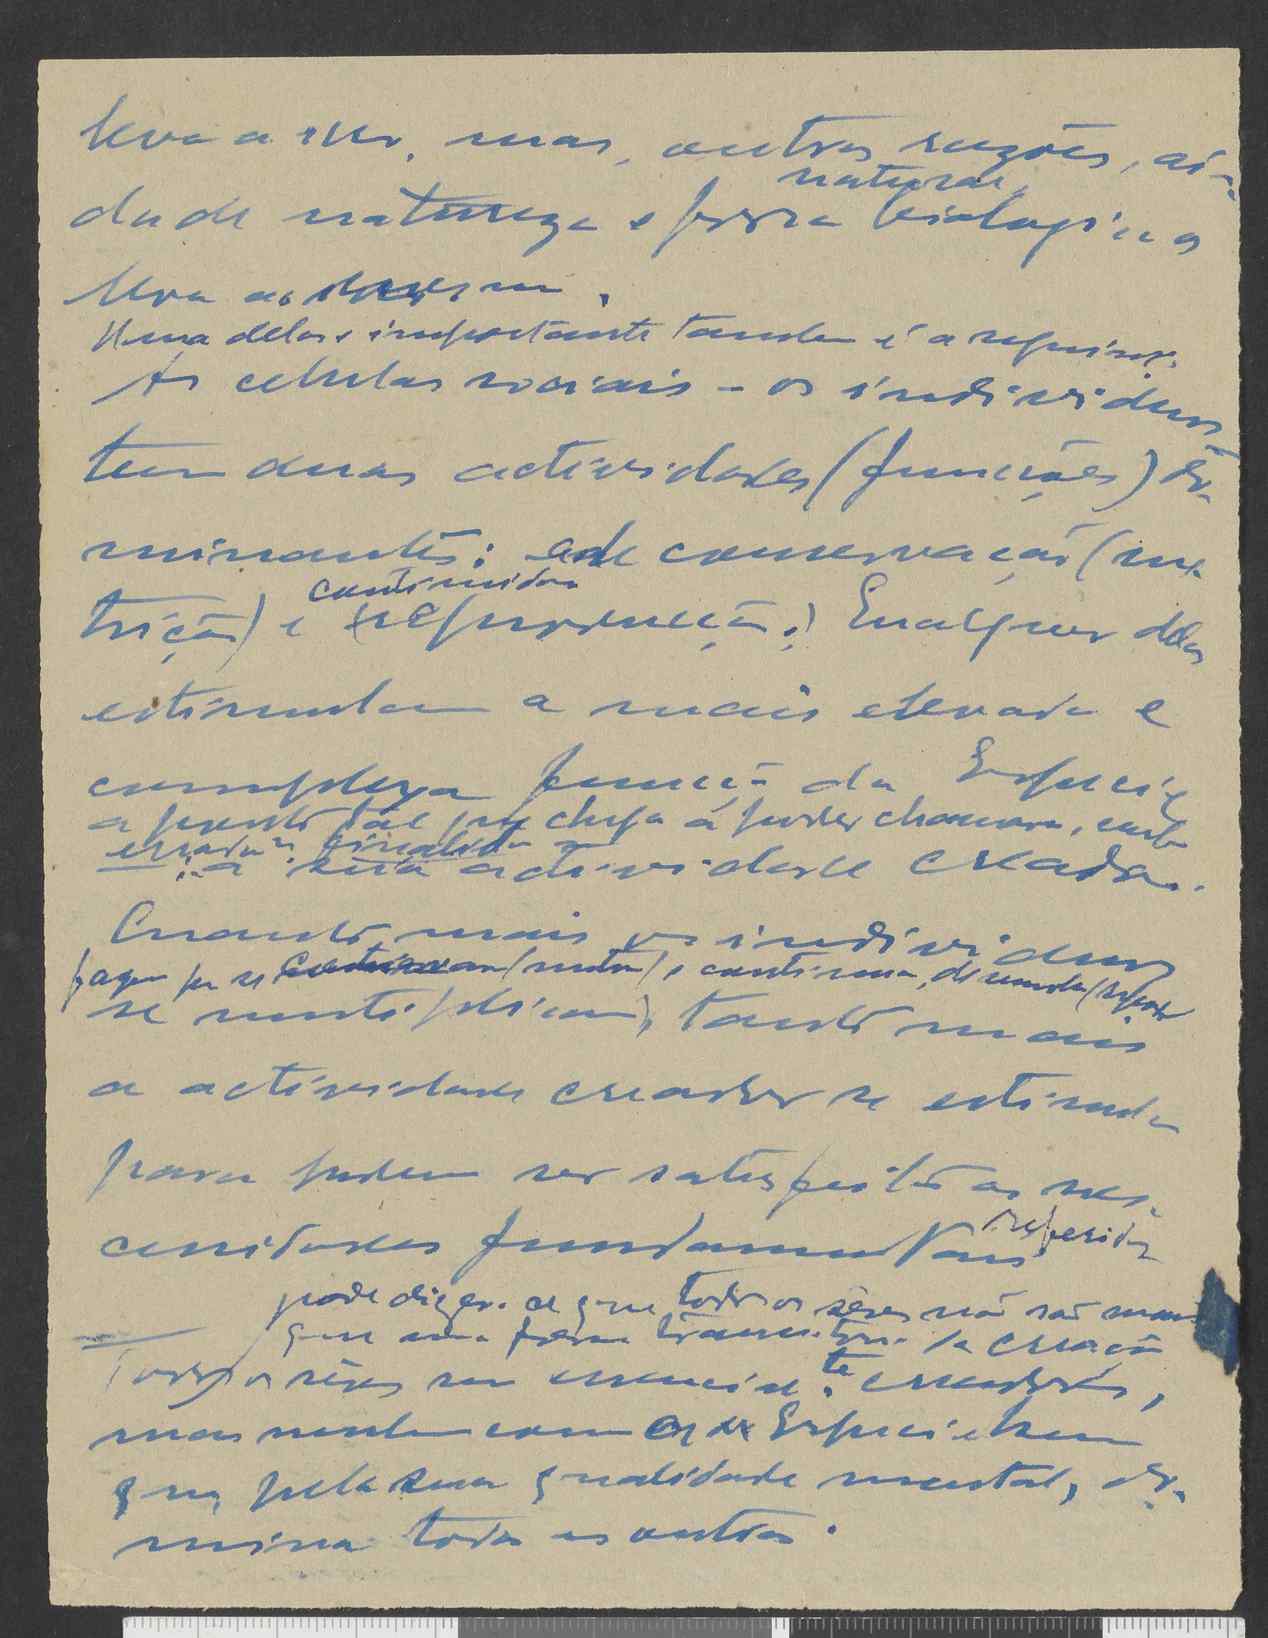 leva a isso, mas, outras razões, ain-
naturae,
da de natureza e força biologica
leva ao mesmo.
Uma delas e importante tambem é a seguinte:
As celulas sociais – os individuos –
tem duas actividades (funções) do-
minantes: a de conservação (nu-
trição) e continuidade
(reprodução.) Qualquer delas
estimulam a mais elevada e
complexa função da Especie
a ponto tal que chega a poder chamar-se, embora
errada a finalidade
: a sua actividade creadora.
Quanto mais os individuos
fazem por se conservar (nutrir) e continuar,
se multiplicam, tanto mais
a actividade creadora se estimula
para poderem ser satisfeitas as ne-
cessidades fundamentais referidas
pode dizer-se que todos os sêres não são mais
que uma forma transitoria da creação
Todos os sêres são essencialmente creadores,
mas nenhum como os da Especie Homem
que, pela sua qualidade mental, do-
mina todas as outras.